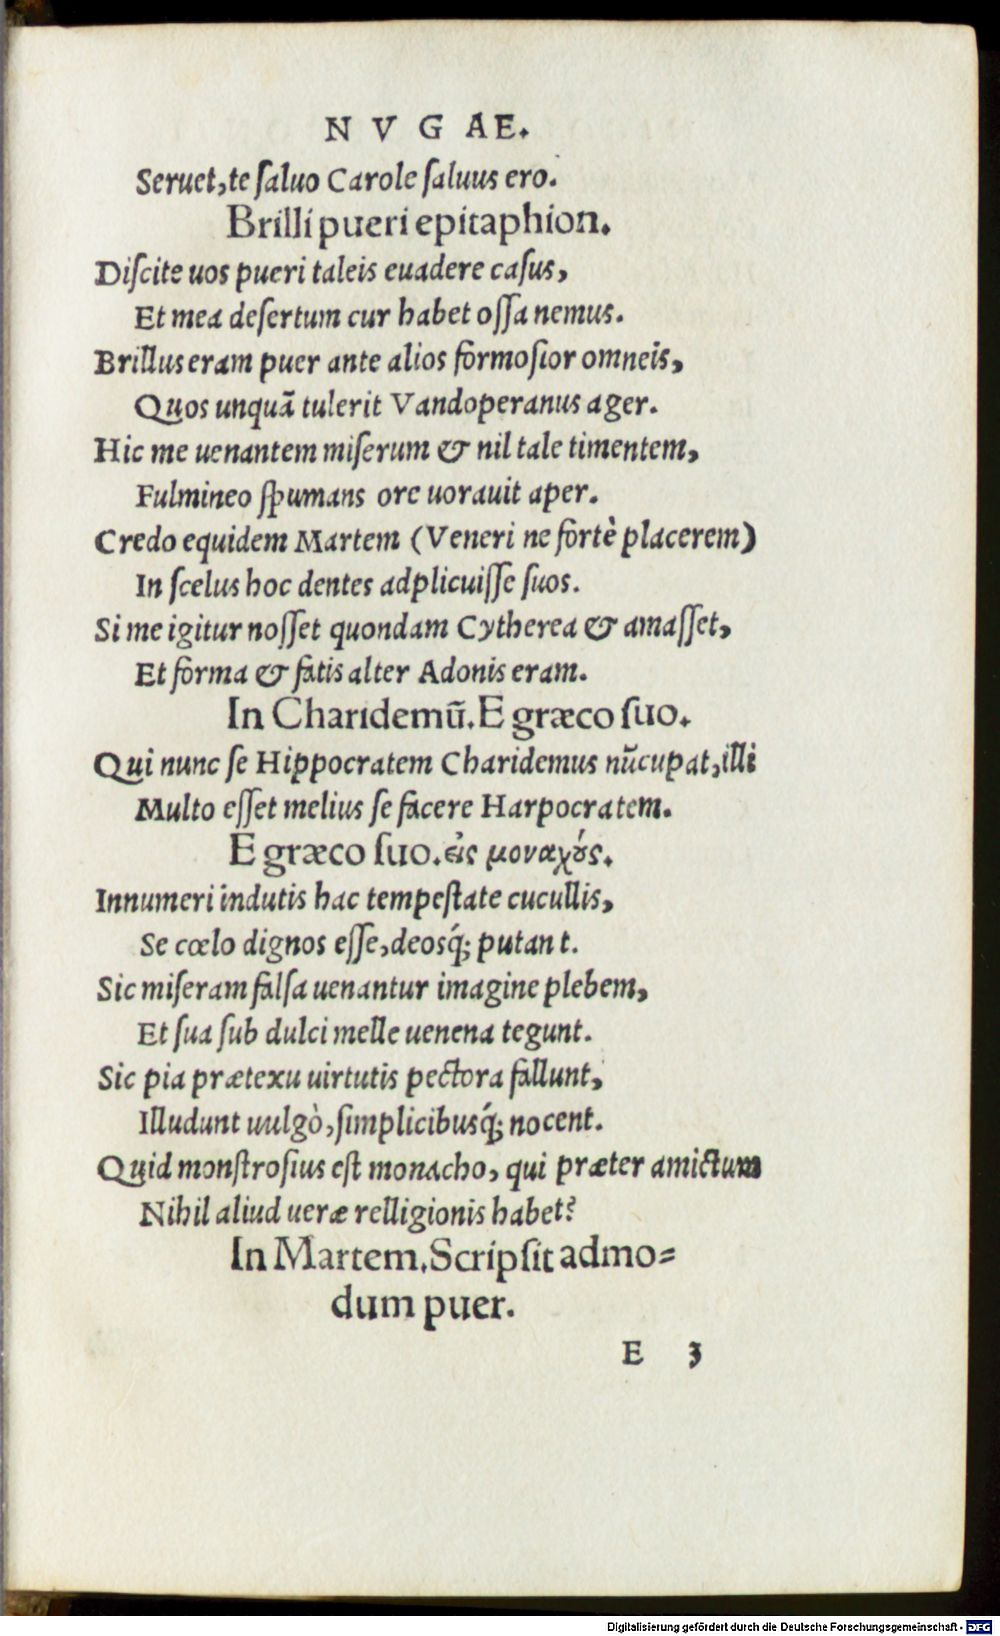 NVGAE.
Seruet, te ſaluo Carole ſaluus ero.
Brilli pueri epitaphion.
Diſcite uos pueri taleis euadere caſus,
Et mea deſertum cur habet oſſa nemus.
Brillus eram puer ante alios formoſior omneis,
Quos unquã tulerit Vandoperanus ager.
Hic me uenantem miſerum & nil tale timentem,
Fulmineo ſpumans ore uorauit aper.
Credo equidem Martem (Veneri ne fortè placerem)
In ſcelus hoc dentes adplicuiſſe ſuos.
Si me igitur noſſet quondam Cytherea & amaſſet,
Et forma & fatis alter Adonis eram.
In Charidemũ. E græco ſuo.
Qui nunc ſe Hippocratem Charidemus nũcupat, illi
Multo eſſet melius ſe facere Harpocratem.
E græco ſuo. εἰς μοναχούς.
Innumeri indutis hac tempeſtate cucullis,
Se cœlo dignos eſſe, deosq́; putant.
Sic miſeram falſa uenantur imagine plebem,
Et ſua ſub dulci melle uenena tegunt.
Sic pia prætexu uirtutis pectora fallunt,
Illudunt uulgò, ſimplicibusq́; nocent.
Quid monſtroſius eſt monacho, qui præter amictum
Nihil aliud ueræ relligionis habet?
In Martem. Scripſit admo=
dum puer.
E 3
Digitalisierung gefördert durch die Deutsche Forschungsgemeinschaft - DFG